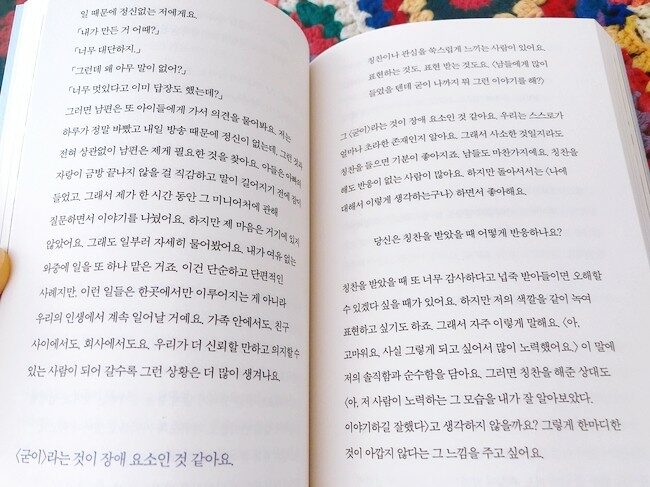 일 때문에 정신없는 저에게요.
「내가 만든 거 어때?」
「너무 대단하지.」
「그런데 왜 아무 말이 없어?」
「너무 멋있다고 이미 답장도 했는데?」
그러면 남편은 또 아이들에게 가서 의견을 물어봐요. 저는
하루가 정말 바빴고 내일 방송 때문에 정신이 없는데, 그런 것과
전혀 상관없이 남편은 제게 필요한 것을 찾아요. 아들은 아빠의
자랑이 금방 끝나지 않을 걸 직감하고 말이 길어지기 전에 잠이
들었고. 그래서 제가 한 시간 동안 그 미니어처에 관해
질문하면서 이야기를 나눴어요. 하지만 제 마음은 거기에 있지
않았어요. 그래도 일부러 자세히 물어봤어요. 내가 여유 없는
와중에 일을 또 하나 맡은 거죠. 이건 단순하고 단편적인
사례지만, 이런 일들은 한곳에서만 이루어지는 게 아니라
우리의 인생에서 계속 일어날 거예요. 가족 안에서도, 친구
사이에서도, 회사에서도요. 우리가 더 신뢰할 만하고 의지할 수
있는 사람이 되어 갈수록 그런 상황은 더 많이 생겨나요.
〈굳이〉라는 것이 장애 요소인 것 같아요.
칭찬이나 관심을 쑥스럽게 느끼는 사람이 있어요.
표현하는 것도, 표현 받는 것도요. 〈남들에게 많이
들었을 텐데 굳이 나까지 뭐 그런 이야기를 해?〉
그 〈굳이〉라는 것이 장애 요소인 것 같아요. 우리는 스스로가
얼마나 초라한 존재인지 알아요. 그래서 사소한 것일지라도
칭찬을 들으면 기분이 좋아지죠. 남들도 마찬가지예요. 칭찬을
해도 반응이 없는 사람이 많아요. 하지만 돌아서서는 〈나에
대해서 이렇게 생각하는구나〉 하면서 좋아해요.
당신은 칭찬을 받았을 때 어떻게 반응하나요?
칭찬을 받았을 때 또 너무 감사하다고 넙죽 받아들이면 오해할
수 있겠다 싶을 때가 있어요. 하지만 저의 색깔을 같이 녹여
표현하고 싶기도 하죠. 그래서 자주 이렇게 말해요. 〈아,
고마워요. 사실 그렇게 되고 싶어서 많이 노력했어요.〉 이 말에
저의 솔직함과 순수함을 담아요. 그러면 칭찬을 해준 상대도
〈아, 저 사람이 노력하는 그 모습을 내가 잘 알아보았다.
이야기하길 잘했다〉고 생각하지 않을까요? 그렇게 한마디한
것이 아깝지 않다는 그 느낌을 주고 싶어요.